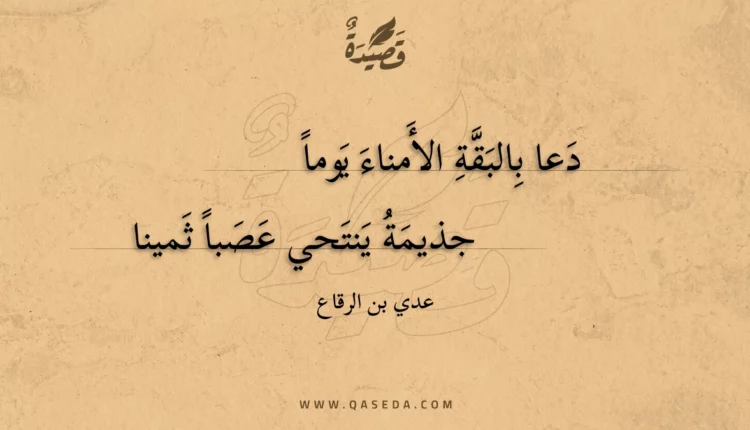 قَصِيدَةٌ
دَعا بِالبَقَّةِ الأَمناءَ يَوماً
جذيمَةُ يَنتَحي عَصَباً ثَمينا
عدي بن الرقاع
WWW.QASEDA.COM